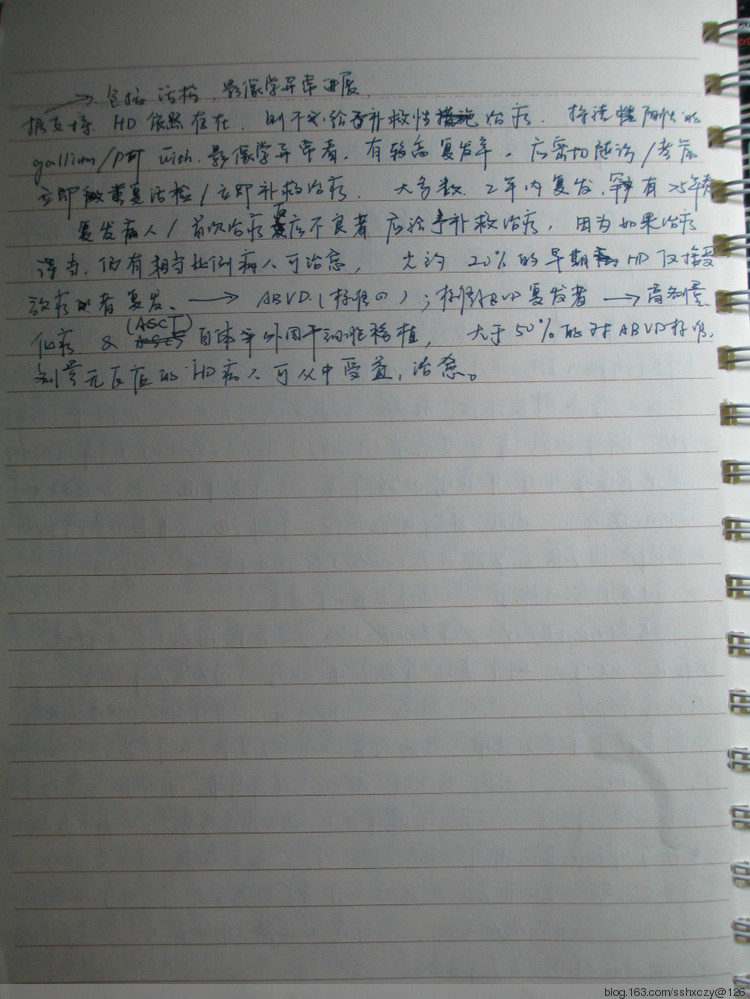 → 包括活检,影像学异常进展
据支持 HD 依然存在,则予以给予补救性治疗。持续阳性的
gallium/PET with 影像学异常者,有较高复发率。应密切随访/考虑
立即做重复活检/立即补救治疗。大多数 2年内复发,罕有 >5年者
复发病人/首次治疗反应不良者应给予补救治疗,因为如果治疗
得当,仍有相当比例病人可治愈,大约 20% 的早期 HD 仅接受
放疗者复发。→ ABVD (标准的);标准ABVD复发者 → 高剂量
化疗 & (ASCT) 自体外周干细胞移植,大于50%的对ABVD标准
剂量无反应的HD病人可从中受益,治愈。
blog.163.com/sshxczy@126